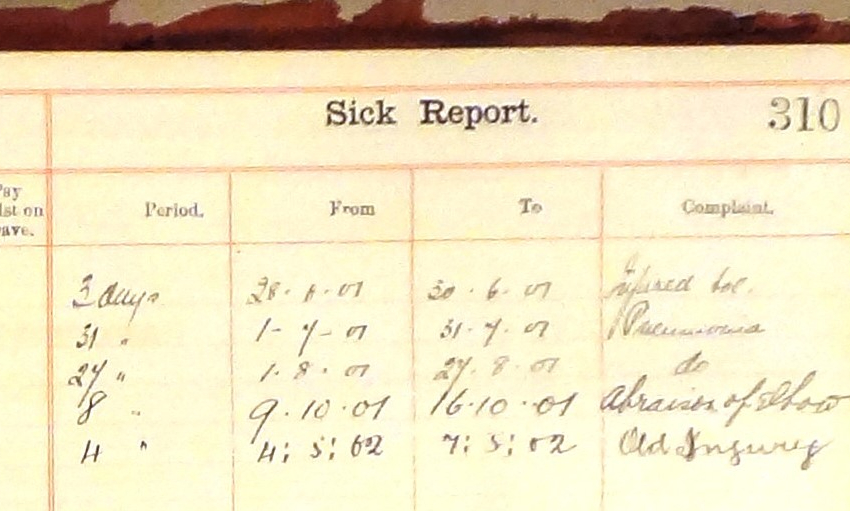 Sick Report. 310
Pay
lst on
ave.
Period. From To Complaint.
3 days 28.6.01 30.6.01 Injured toe.
31 " 1-7-01 31.7.01 Pneumonia
27 " 1.8.01 27.8.01 do
8 " 9.10.01 16.10.01 Abraison of Elbow
4 " 4:5:02 7:5:02 Old Ingurey